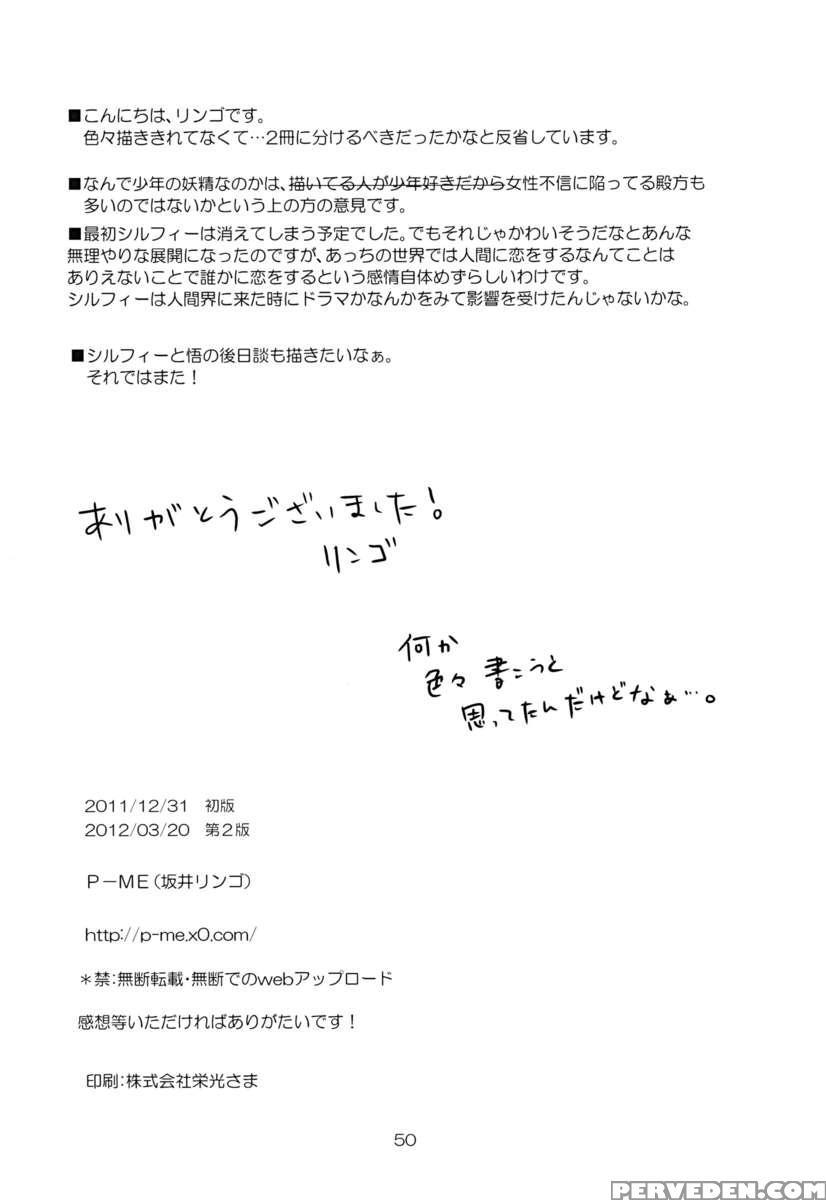 ■こんにちは、リンゴです。
色々描ききれてなくて…2冊に分けるべきだったかなと反省しています。
■なんで少年の妖精なのかは、描いてる人が少年好きだから女性不信に陥ってる殿方も
多いのではないかという上の方の意見です。
■最初シルフィーは消えてしまう予定でした。でもそれじゃかわいそうだなとあんな
無理やりな展開になったのですが、あっちの世界では人間に恋をするなんてことは
ありえないことで誰かに恋をするという感情自体めずらしいわけです。
シルフィーは人間界に来た時にドラマかなんかをみて影響を受けたんじゃないかな。
■シルフィーと悟の後日談も描きたいなぁ。
それではまた！
ありがとうございました！
リンゴ
何か
色々書こうと
思ってたんだけどなぁ…。
2011/12/31 初版
2012/03/20 第2版
P－ME（坂井リンゴ）
http://p-me.x0.com/
＊禁：無断転載・無断でのwebアップロード
感想等いただければありがたいです！
印刷：株式会社栄光さま
50
PERVEDEN.COM